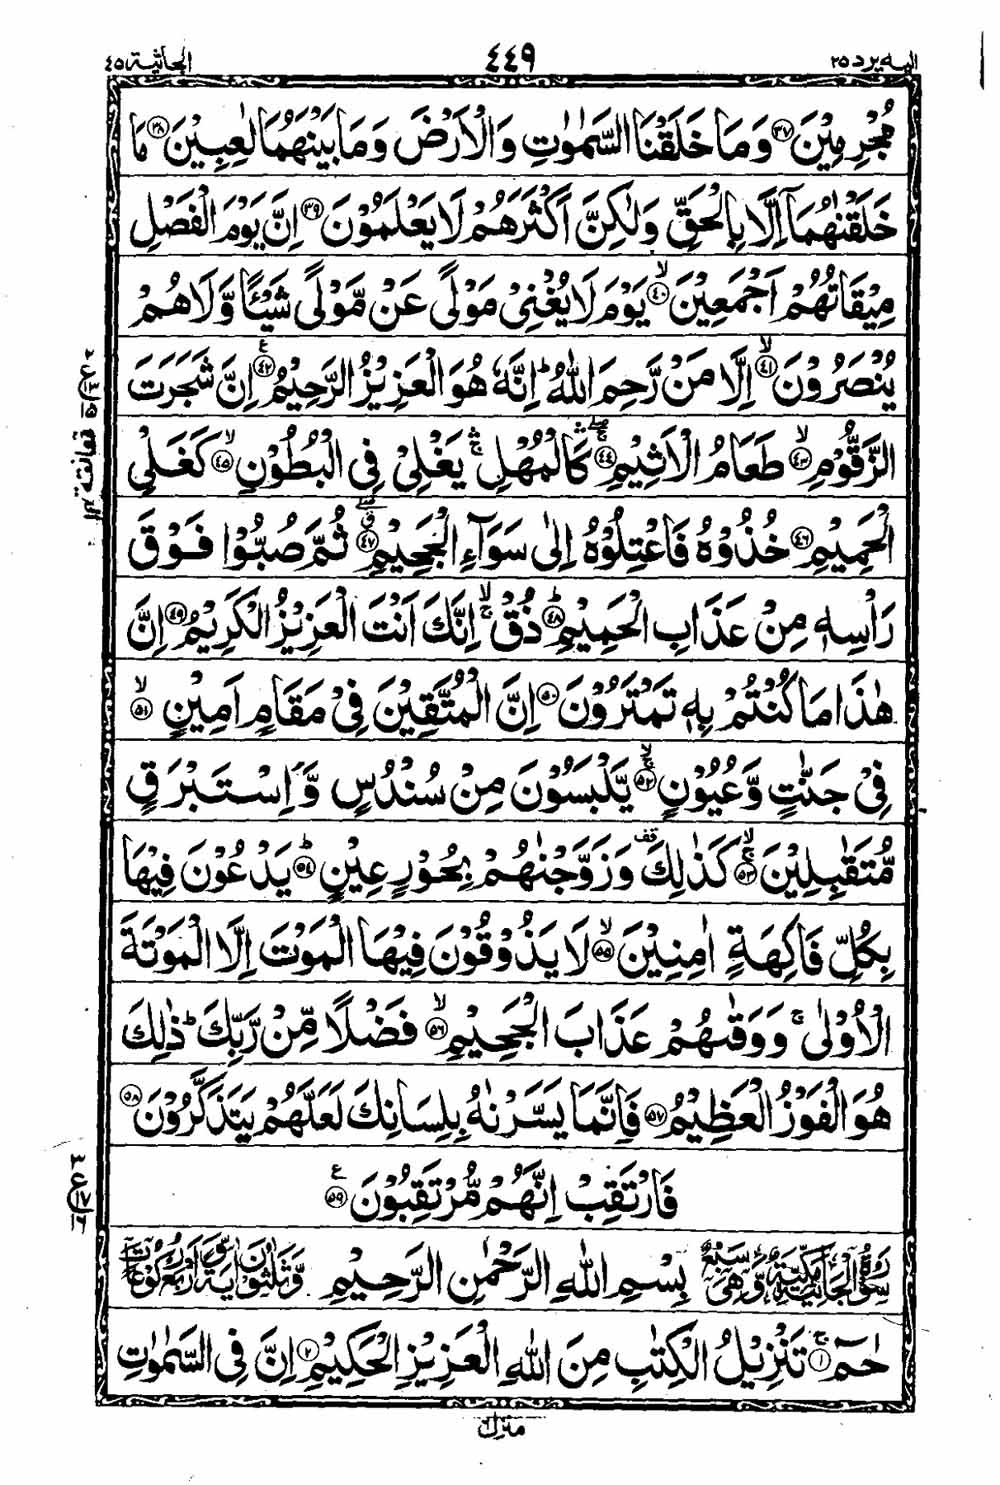 الجاثية ٤٥ ٤٤٩ اليه يرد ٢٥
مُجْرِمِيْنَ ﴿٣٧﴾ وَمَا خَلَقْنَا السَّمٰوٰتِ وَالْاَرْضَ وَمَا بَيْنَهُمَا لٰعِبِيْنَ ﴿٣٨﴾ مَا
خَلَقْنٰهُمَاۤ اِلَّا بِالْحَقِّ وَلٰكِنَّ اَكْثَرَهُمْ لَا يَعْلَمُوْنَ ﴿٣٩﴾ اِنَّ يَوْمَ الْفَصْلِ
مِيْقَاتُهُمْ اَجْمَعِيْنَ ﴿٤٠﴾ۙ يَوْمَ لَا يُغْنِيْ مَوْلًى عَنْ مَّوْلًى شَيْـًٔا وَّلَا هُمْ
يُنْصَرُوْنَ ﴿٤١﴾ۙ اِلَّا مَنْ رَّحِمَ اللّٰهُ ؕ اِنَّهٗ هُوَ الْعَزِيْزُ الرَّحِيْمُ ﴿٤٢﴾ اِنَّ شَجَرَتَ
الزَّقُّوْمِ ﴿٤٣﴾ۙ طَعَامُ الْاَثِيْمِ ﴿٤٤﴾ كَالْمُهْلِ ۛۚ يَغْلِيْ فِي الْبُطُوْنِ ﴿٤٥﴾ۙ كَغَلْيِ
الْحَمِيْمِ ﴿٤٦﴾ خُذُوْهُ فَاعْتِلُوْهُ اِلٰى سَوَآءِ الْجَحِيْمِ ﴿٤٧﴾ ثُمَّ صُبُّوْا فَوْقَ
رَاْسِهٖ مِنْ عَذَابِ الْحَمِيْمِ ﴿٤٨﴾ؕ ذُقْ ۙۚ اِنَّكَ اَنْتَ الْعَزِيْزُ الْكَرِيْمُ ﴿٤٩﴾ اِنَّ
هٰذَا مَا كُنْتُمْ بِهٖ تَمْتَرُوْنَ ﴿٥٠﴾ اِنَّ الْمُتَّقِيْنَ فِيْ مَقَامٍ اَمِيْنٍ ﴿٥١﴾ۙ
فِيْ جَنّٰتٍ وَّعُيُوْنٍ ﴿٥٢﴾ۙۚ يَّلْبَسُوْنَ مِنْ سُنْدُسٍ وَّاِسْتَبْرَقٍ
مُّتَقٰبِلِيْنَ ﴿٥٣﴾ۙۚ كَذٰلِكَ قف وَزَوَّجْنٰهُمْ بِحُوْرٍ عِيْنٍ ﴿٥٤﴾ؕ يَدْعُوْنَ فِيْهَا
بِكُلِّ فَاكِهَةٍ اٰمِنِيْنَ ﴿٥٥﴾ۙ لَا يَذُوْقُوْنَ فِيْهَا الْمَوْتَ اِلَّا الْمَوْتَةَ
الْاُوْلٰى ۚ وَوَقٰىهُمْ عَذَابَ الْجَحِيْمِ ﴿٥٦﴾ۙ فَضْلًا مِّنْ رَّبِّكَ ؕ ذٰلِكَ
هُوَ الْفَوْزُ الْعَظِيْمُ ﴿٥٧﴾ فَاِنَّمَا يَسَّرْنٰهُ بِلِسَانِكَ لَعَلَّهُمْ يَتَذَكَّرُوْنَ ﴿٥٨﴾
فَارْتَقِبْ اِنَّهُمْ مُّرْتَقِبُوْنَ ﴿٥٩﴾
سُوْرَةُ الْجَاثِيَةِ مَكِّيَّةٌ وَّهِيَ سَبْعٌ بِسْمِ اللّٰهِ الرَّحْمٰنِ الرَّحِيْمِ وَّثَلٰثُوْنَ اٰيَةً وَّاَرْبَعُ رُكُوْعَاتٍ
حٰمٓ ﴿١﴾ۚ تَنْزِيْلُ الْكِتٰبِ مِنَ اللّٰهِ الْعَزِيْزِ الْحَكِيْمِ ﴿٢﴾ اِنَّ فِي السَّمٰوٰتِ
منزل ٦